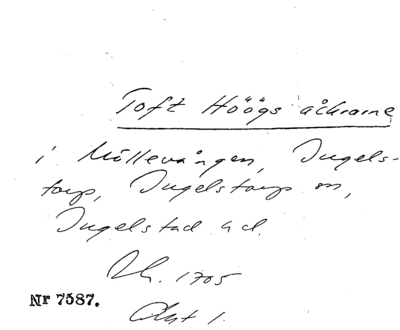 Toft Höögs åkrarne
i Möllevången, Ingels-
torp, Ingelstorp sn,
Ingelstad hd.
Lh. 1705
Nr 7587.
Akt 1.